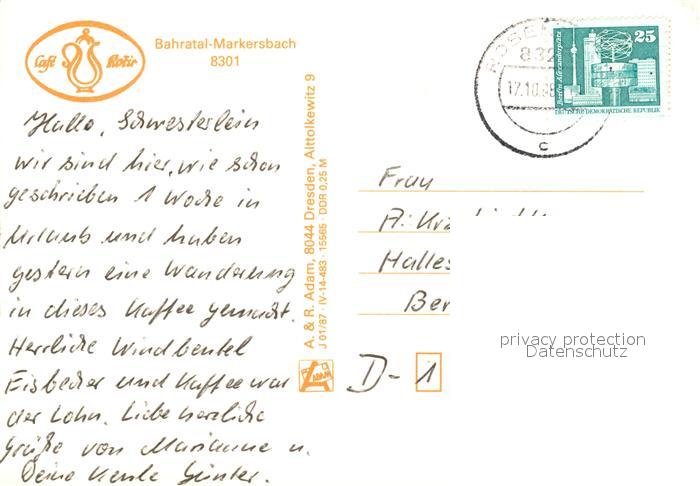 Café Nötzi
Bahratal-Markersbach
8301
Hallo, Schwesterlein
wir sind hier, wie schon
geschrieben 1 Woche in
Urlaub und haben
gestern eine Wanderung
in dieses Kaffee gemacht.
Herrliche Windbeutel
Eisbecher und Kaffee war
der Lohn. Liebe herzliche
Grüße von Marianne u.
Deine Günter.
A. & R. Adam, 8044 Dresden, Alttolkewitz 9
J 01/87 · IV-14-483 · 15565 · DDR 0,25 M
ADAM
17.10.88
c
Berlin, Alexanderplatz
25
DEUTSCHE DEMOKRATISCHE REPUBLIK
Frau
Halles
Ber
D-1
privacy protection
Datenschutz